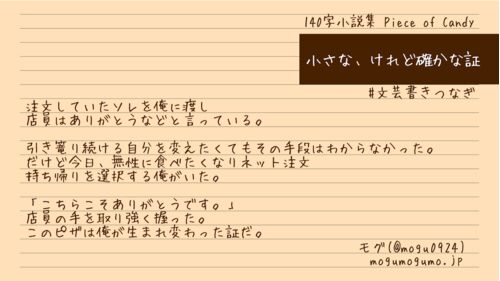 140字小説集 Piece of Candy
小さな、けれど確かな証
#文芸書きつなぎ
注文していたソレを俺に渡し
店員はありがとうなどと言っている。
引き篭り続ける自分を変えたくてもその手段はわからなかった。
だけど今日、無性に食べたくなりネット注文
持ち帰りを選択する俺がいた。
「こちらこそありがとうです。」
店員の手を取り強く握った。
このピザは俺が生まれ変わった証だ。
モグ(@mogu0924)
mogumogumo.jp